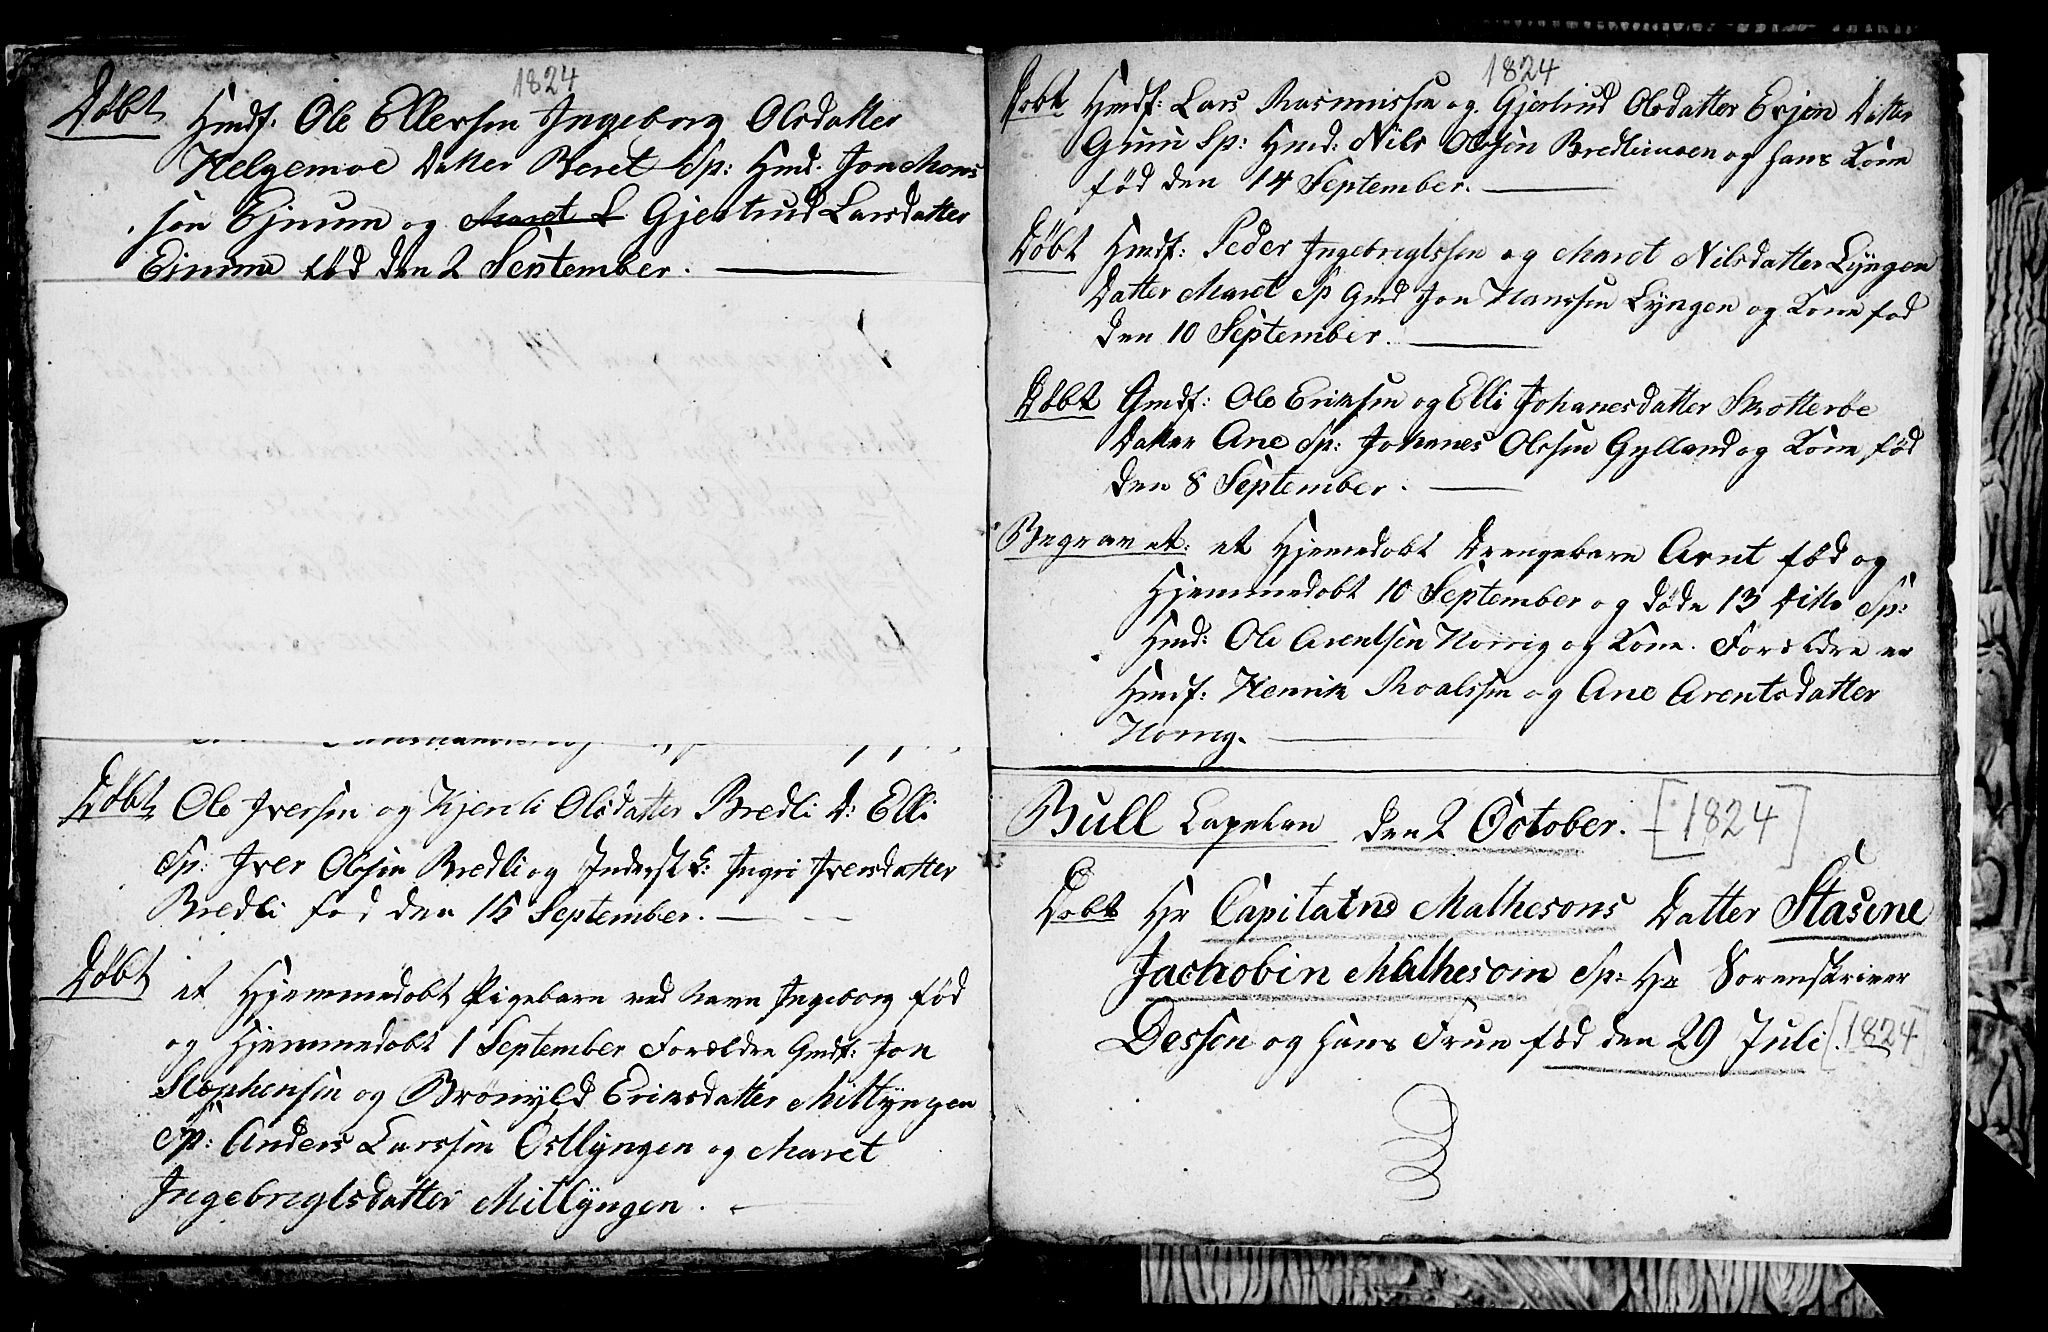 1824
Døbt Hmdf. Ole Ellevsen Ingeborg Olsdatter
Helgemoe Datter Beret Sp: Hmd. Jon Mons
søn Ejnum og Maret L Gjertrud Larsdatter
Einum fød den 2 September.
Døbt Ole Iversen og Kjersti Olsdatter Bredli D: Elli
Sp: Iver Olsøn Bredli og Inderst K: Ingri Iversdatter
Bredli fød den 15 September.
Døbt et Hjemmedøbt Pigebarn ved Navn Ingeborg fød
og Hjemmedøbt 1 September Forældre Gmdf: Jon
Stephensøn og Brønyld Eriksdatter Mitlyngen
Sp: Anders Larssøn Østlyngen og Maret
Ingebregtsdatter Mitlyngen.
1824
Døbt Hmdf: Lars Rasmussen og Gjertrud Olsdatter Evjen Datter
Guru Sp: Hmd: Nils Olssøn og hans Kone
fød den 14 September.
Døbt Hmdf: Peder Ingebregtssen og Maret Nilsdatter Lyngen
Datter Maret Sp Gmd Jon Hanssen Lyngen og Kone fød
den 10 September.
Døbt Gmdf: Ole Eriksen og Elli Johanesdatter Skotterøe
Datter Ane Sp: Johanes Olssen Gylland og Kone, fød
den 8 September.
Begravet: et Hjemedøbt Drengebarn Arnt fød og
Hjemmedøbt 10 September og døde 13 Ditto Sp:
Hmd: Ole Arentsen Horrig og Kone. Forældre er
Hmdf: Henrik Roalssen og Ane Arentsdatter
Horrig.
Bull Capelan den 2 October. [1824]
Døbt Hr Capitains Mathesons Datter Stasine
Jachobin Mathesoin Sp: Hr Sorenskriver
Dessen og Hans Frue fød den 29 Juli. [1824]